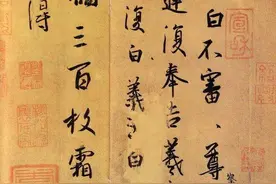 白不審、尊
遲復奉告羲
復白羲之白
橘三百枚霜
得